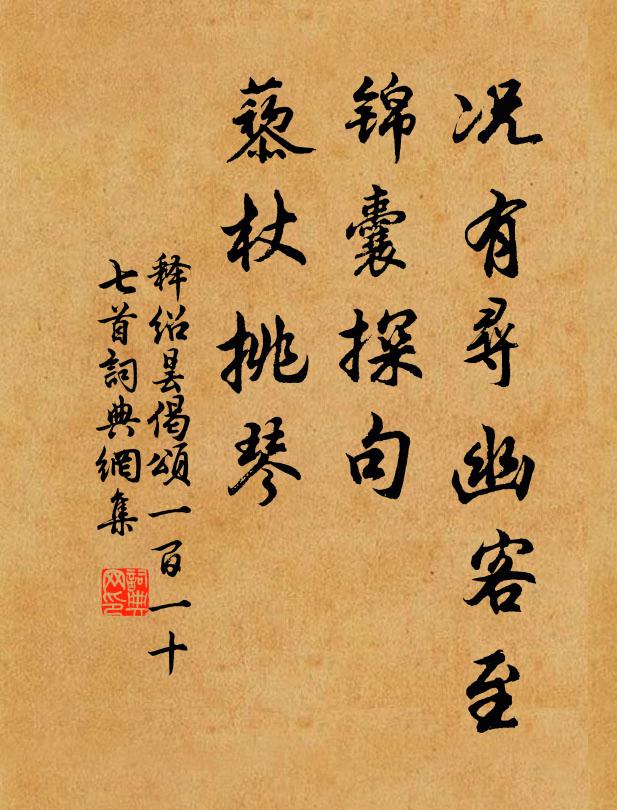 况有尋幽客至
锦囊探句
藜杖挑琴
释绍昙偈頌一百一十
七首詞典網集
詞典
网印